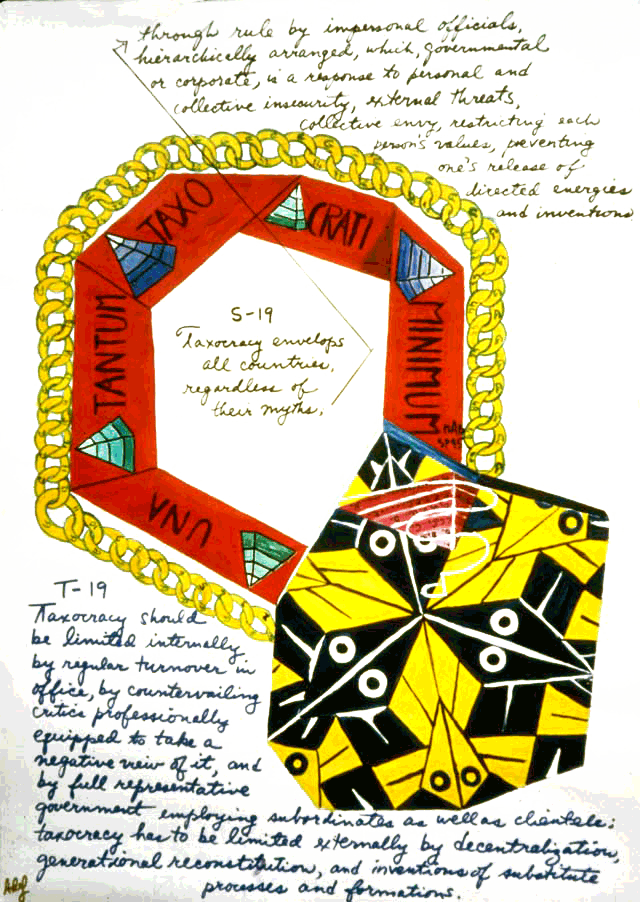 through rule by impersonal officials,
hierarchically arranged, which, governmental
or corporate, is a response to personal and
collective insecurity, external threats,
collective envy, restricting each
person's values, preventing
one's release of
directed energies
and inventions
TAXO
CRATI
MINIMUM
TANTUM
UNA
S-19
Taxocracy envelops
all countries,
regardless of
their myths,
T-19
Taxocracy should
be limited internally
by regular turnover in
office, by countervailing
critics professionally
equipped to take a
negative view of it, and
by full representative
government employing subordinates as well as clientele;
taxocracy has to be limited externally by decentralization,
generational reconstitution, and inventions of substitute
processes and formations.